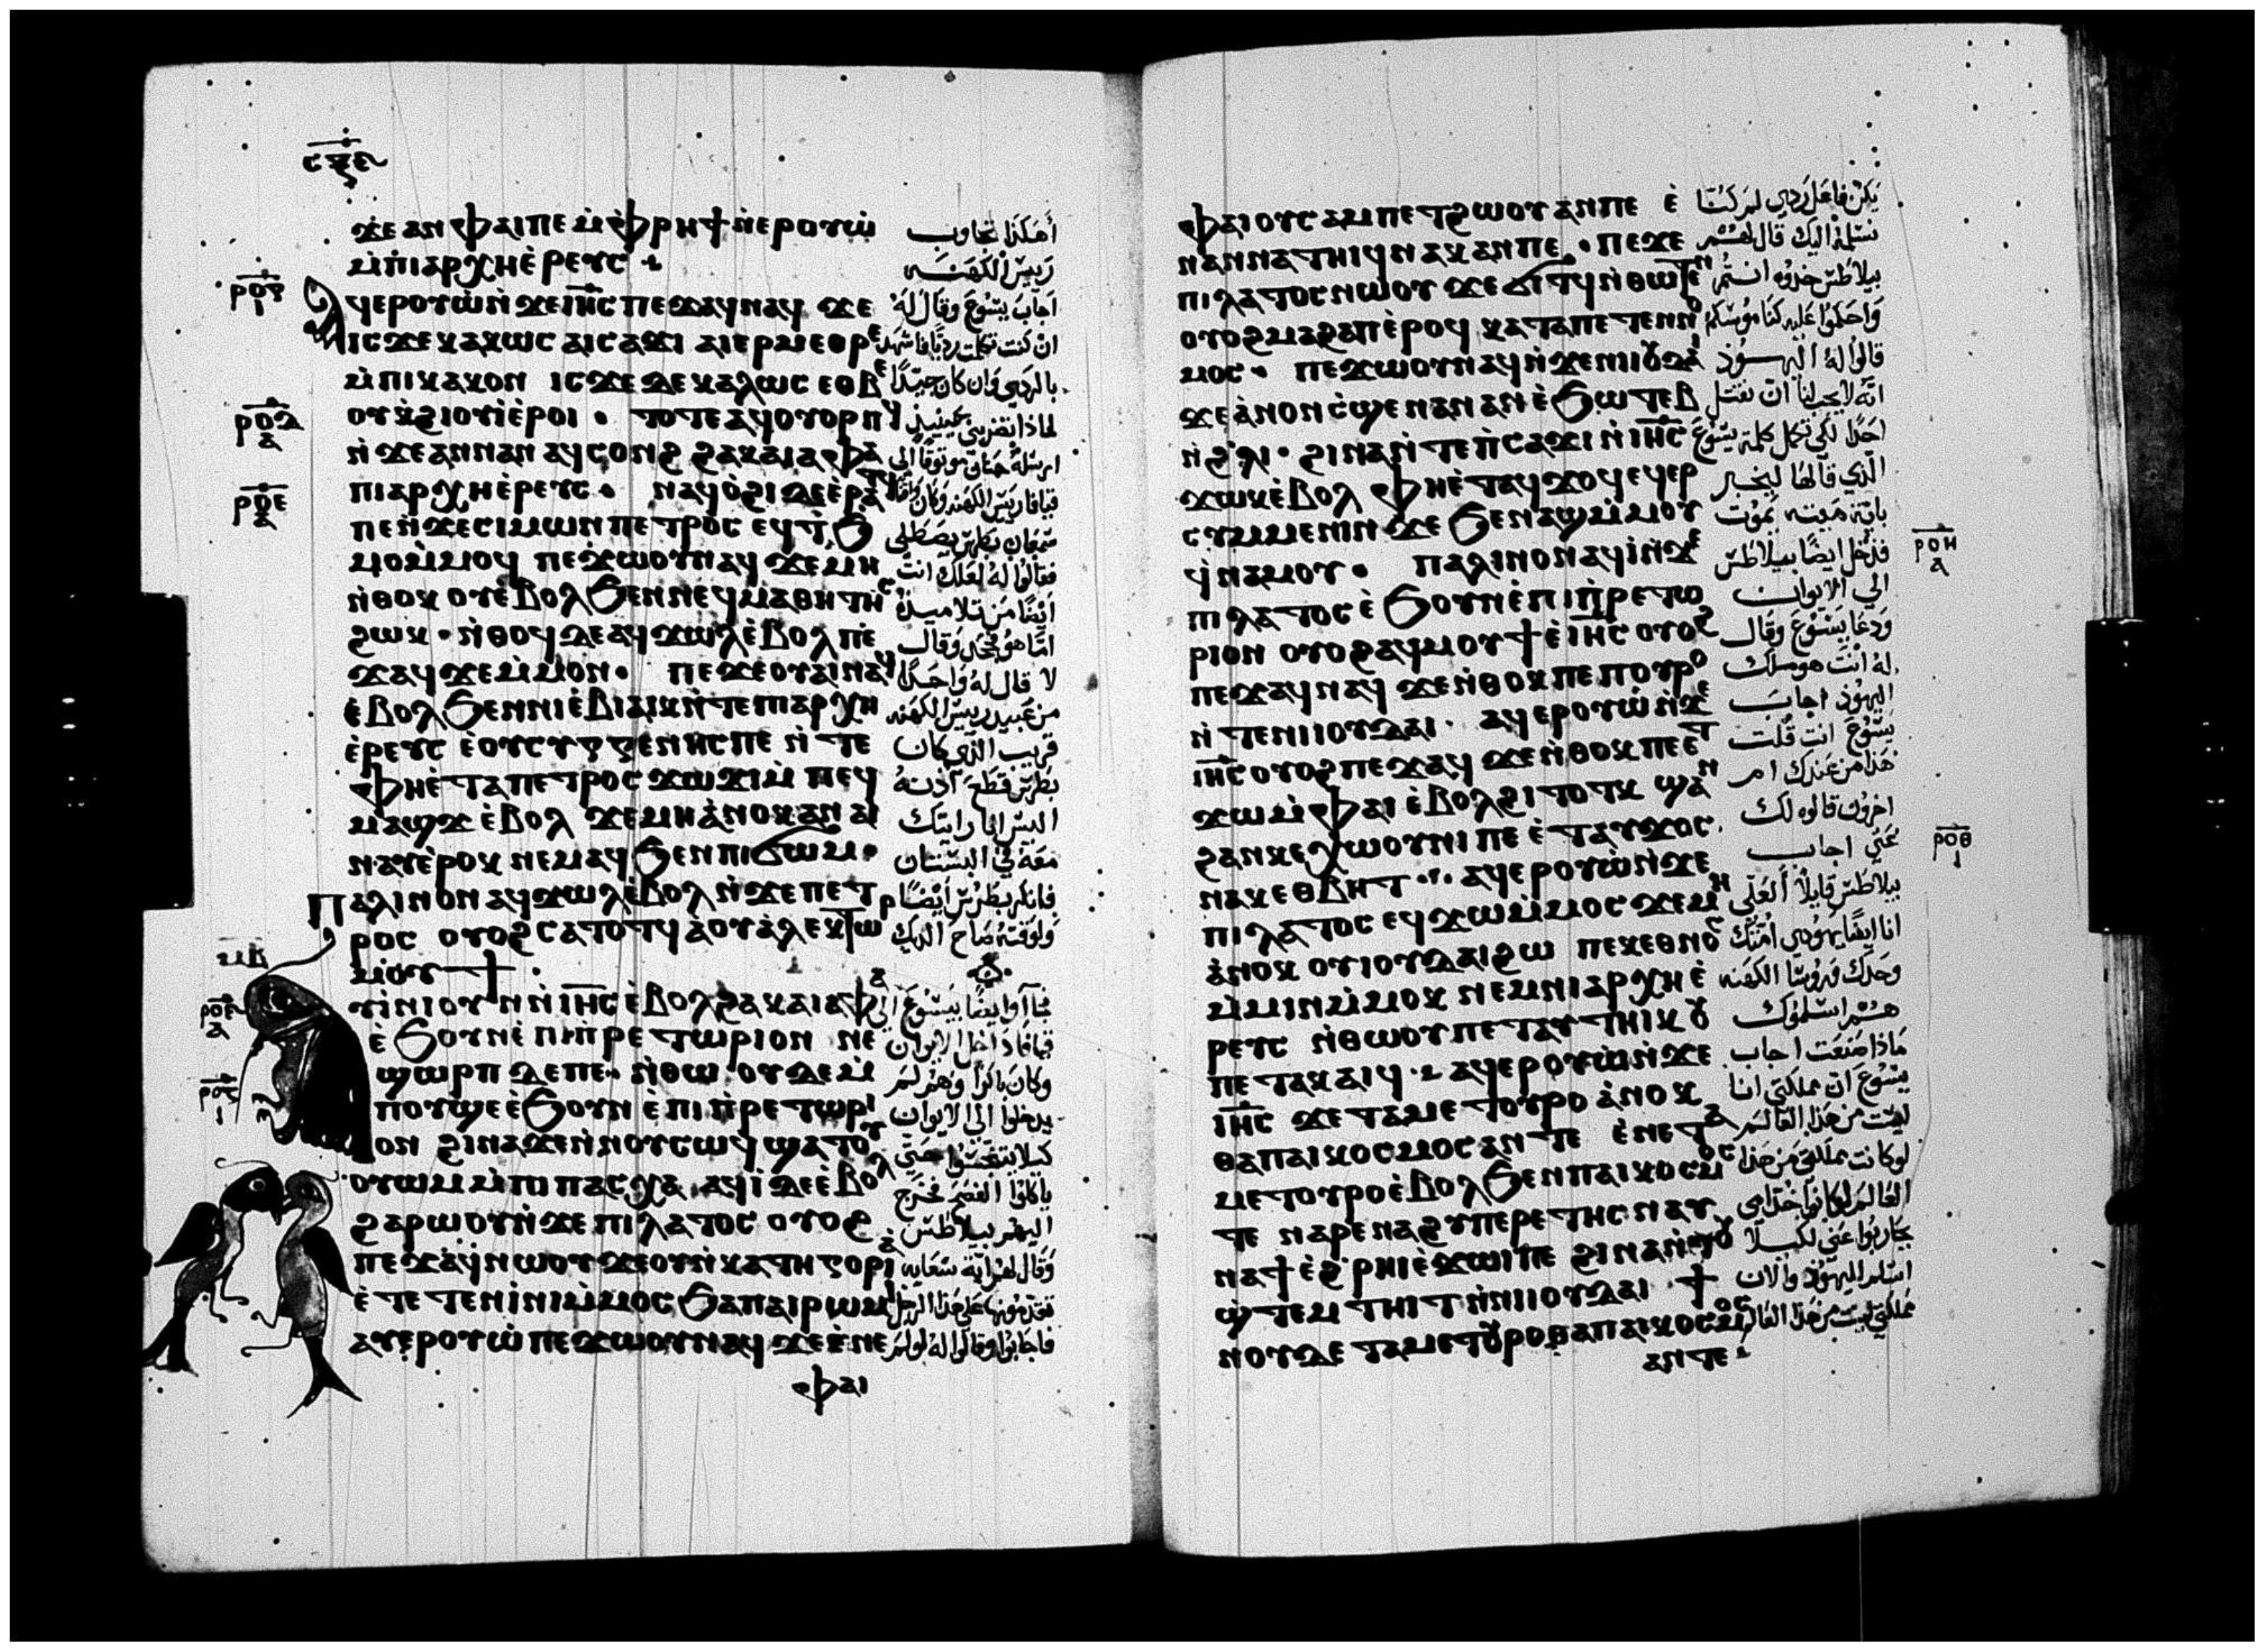 ⲥⲝⲉ
ϫⲉ ⲁⲛ ⲫⲁⲓ ⲡⲉ ⲙ̇ⲫⲣⲏϯ ⲛ̇ⲉⲣⲟⲩⲱ̇
ⲙ̇ⲡⲓⲁⲣⲭⲏⲉ̇ⲣⲉⲩⲥ
ⲁϥⲉⲣⲟⲩⲱ̇ ⲛ̇ϫⲉ ⲓⲏⲥ ⲡⲉϫⲁϥ ⲛⲁϥ ϫⲉ
ⲓⲥϫⲉ ⲕⲁⲕⲱⲥ ⲁⲓⲥⲁϫⲓ ⲁⲣⲓⲉⲣⲙⲉⲑⲣⲉ
ⲙ̇ⲡⲓⲕⲁⲕⲟⲛ ⲓⲥϫⲉ ⲇⲉ ⲕⲁⲗⲱⲥ ⲉⲑⲃⲉ
ⲟⲩ ⲕ̇ϩⲓⲟⲩⲓ̇ ⲉ̇ⲣⲟⲓ · ⲧⲟⲧⲉ ⲁϥⲟⲩⲟⲣⲡϥ
ⲛ̇ϫⲉ ⲁⲛⲛⲁⲛ ⲁϥⲥⲟⲛϩ ϩⲁ ⲕⲁⲓⲁⲫⲁ
ⲡⲓⲁⲣⲭⲏⲉ̇ⲣⲉⲩⲥ · ⲛⲁϥⲟ̇ϩⲓ ⲇⲉ ⲉ̇ⲣⲁⲧϥ
ⲡⲉ ⲛ̇ϫⲉ ⲥⲓⲙⲱⲛ ⲡⲉⲧⲣⲟⲥ ⲉϥϯϧ
ⲙⲟⲙ̇ⲙⲟϥ ⲡⲉϫⲱⲟⲩ ⲛⲁϥ ϫⲉ ⲙⲏ
ⲛ̇ⲑⲟⲕ ⲟⲩⲉ̇ⲃⲟⲗ ϧⲉⲛ ⲛⲉϥⲙⲁⲑⲏⲧⲏⲥ
ϩⲱⲕ · ⲛ̇ⲑⲟϥ ⲇⲉ ⲁϥϫⲱⲗ ⲉ̇ⲃⲟⲗ ⲡⲉ
ϫⲁϥ ϫⲉ ⲙ̇ⲙⲟⲛ · ⲡⲉϫⲉ ⲟⲩⲁⲓ ⲛⲁϥ
ⲉ̇ⲃⲟⲗ ϧⲉⲛ ⲛⲓⲉ̇ⲃⲓⲁⲓⲕ ⲛ̇ⲧⲉ ⲡⲓⲁⲣⲭⲏ
ⲉ̇ⲣⲉⲩⲥ ⲉ̇ⲟⲩⲥⲩⲅⲅⲉⲛⲏⲥ ⲡⲉ ⲛ̇ⲧⲉ
ⲫⲏⲉ̇ⲧⲁ ⲡⲉⲧⲣⲟⲥ ϫⲱϫⲓ ⲙ̇ⲡⲉϥ
ⲙⲁϣϫ ⲉ̇ⲃⲟⲗ ϫⲉ ⲙⲏ ⲁ̇ⲛⲟⲕ ⲁⲛ ⲁⲓ
ⲛⲁⲩ ⲉ̇ⲣⲟⲕ ⲛⲉⲙⲁϥ ϧⲉⲛ ⲡⲓϭⲱⲙ ·
ⲡⲁⲗⲓⲛ ⲟⲛ ⲁϥϫⲱⲗ ⲉ̇ⲃⲟⲗ ⲛ̇ϫⲉ ⲡⲉⲧ
ⲣⲟⲥ ⲟⲩⲟϩ ⲥⲁⲧⲟⲧϥ ⲁ̇ ⲟⲩⲁ̇ⲗⲉⲕⲧⲱⲣ
ⲙⲟⲩϯ ·
ⲁⲩⲓ̇ⲛⲓ ⲟⲩⲛ ⲛ̇ⲓⲏⲥ ⲉ̇ⲃⲟⲗ ϩⲁ ⲕⲁⲓⲁⲫⲁ
ⲉ̇ϧⲟⲩⲛ ⲉ̇ⲡⲓⲡ̇ⲣⲉⲧⲱⲣⲓⲟⲛ ⲛⲉ
ϣⲱⲣⲡ ⲇⲉ ⲡⲉ · ⲛ̇ⲑⲱⲟⲩ ⲇⲉ ⲙ̇
ⲡⲟⲩϣⲉ ⲉ̇ϧⲟⲩⲛ ⲉ̇ⲡⲓⲡ̇ⲣⲉⲧⲱⲣⲓ
ⲟⲛ ϩⲓⲛⲁ ϫⲉ ⲛ̇ⲛⲟⲩⲥⲱϥ ϣⲁⲧⲟⲩ
ⲟⲩⲱⲙ ⲙ̇ⲡⲓⲡⲁⲥⲭⲁ ⲁϥⲓ̇ ⲇⲉ ⲉ̇ⲃⲟⲗ
ϩⲁⲣⲱⲟⲩ ⲛ̇ϫⲉ ⲡⲓⲗⲁⲧⲟⲥ ⲟⲩⲟϩ
ⲡⲉϫⲁϥ ⲛⲱⲟⲩ ϫⲉ ⲟⲩ ⲛ̇ⲕⲁⲧⲏⲅⲟⲣⲓⲁ
ⲉ̇ⲧⲉⲧⲉⲛⲓ̇ⲛⲓ ⲙ̇ⲙⲟⲥ ϧⲁ ⲡⲁⲓⲣⲱⲙⲓ
ⲁⲩⲉⲣⲟⲩⲱ̇ ⲡⲉϫⲱⲟⲩ ⲛⲁϥ ϫⲉ ⲉ̇ⲛⲉ
ⲫⲁⲓ
أهكذا تجاوب
رييس الكهنه
اجاب يسوع وقال له
ان كنت تكلمت رديًا فاشهد
بالردي وان كان جيدًا
لماذا تضربني حينيذ
ارسله حنان موثوقًا الى
قيافا رييس الكهنه وكان واقفًا
سمعان بطرس يصطلي
فقالوا له لعلك انت
ايضًا من تلاميذه
اما هو فجحد وقال
لا قال له واحدًا
من عبيد رييس الكهنه
قريب الذي كان
بطرس قطع اذنه
اليس انا رايتك
معه في البستان
فانكر بطرس ايضًا
ولوقته صاح الديك
فجاآوا ايضًا بيسوع الى
قيافا داخل الايوان
وكان باكرًا وهم لم
يدخلوا الى الايوان
كيلا يتنجسوا حتى
ياكلوا الفصح فخرج
اليهم بيلاطس
وقال لهم ايه سعايه
تقدمونها على هذا الرجل
فاجابوا وقالوا له لو لم
ⲣⲟⲇ
ⲣⲟⲉ
ⲙⲃ
ⲫⲁⲓ ⲟⲩⲥⲁⲙⲡⲉⲧϩⲱⲟⲩ ⲁⲛ ⲡⲉ ⲉ̇
ⲛⲁⲛⲛⲁⲧⲏⲓϥ ⲛⲁⲕ ⲁⲛ ⲡⲉ · ⲡⲉϫⲉ
ⲡⲓⲗⲁⲧⲟⲥ ⲛⲱⲟⲩ ϫⲉ ϭⲓⲧϥ ⲛ̇ⲑⲱⲧⲉⲛ
ⲟⲩⲟϩ ⲙⲁϩⲁⲡ ⲉ̇ⲣⲟϥ ⲕⲁⲧⲁ ⲡⲉⲧⲉⲛⲛⲟ
ⲙⲟⲥ · ⲡⲉϫⲱⲟⲩ ⲛⲁϥ ⲛ̇ϫⲉ ⲛⲓⲓⲟⲩⲇⲁⲓ
ϫⲉ ⲁ̇ⲛⲟⲛ ⲥ̇ϣⲉ ⲛⲁⲛ ⲁⲛ ⲉ̇ϧⲱⲧⲉⲃ
ⲛ̇ϩⲗⲓ · ϩⲓⲛⲁ ⲛ̇ⲧⲉ ⲡ̇ⲥⲁϫⲓ ⲛ̇ⲓⲏⲥ
ϫⲱⲕ ⲉ̇ⲃⲟⲗ ⲫⲏⲉ̇ⲧⲁϥϫⲟϥ ⲉϥⲉⲣ
ⲥⲩⲙⲙⲉⲛⲓⲛ ϫⲉ ϧⲉⲛ ⲁϣ ⲙ̇ⲙⲟⲩ
ϥ̇ⲛⲁⲙⲟⲩ · ⲡⲁⲗⲓⲛ ⲟⲛ ⲁϥⲓ̇ ⲛ̇ϫⲉ
ⲡⲓⲗⲁⲧⲟⲥ ⲉ̇ϧⲟⲩⲛ ⲉ̇ⲡⲓⲡ̇ⲣⲉⲧⲱ
ⲣⲓⲟⲛ ⲟⲩⲟϩ ⲁϥⲙⲟⲩϯ ⲉ̇ⲓⲏⲥ ⲟⲩⲟϩ
ⲡⲉϫⲁϥ ⲛⲁϥ ϫⲉ ⲛ̇ⲑⲟⲕ ⲡⲉ ⲡⲟⲩⲣⲟ
ⲛ̇ⲧⲉ ⲛⲓⲓⲟⲩⲇⲁⲓ · ⲁϥⲉⲣⲟⲩⲱ̇ ⲛ̇ϫⲉ
ⲓⲏⲥ ⲟⲩⲟϩ ⲡⲉϫⲁϥ ϫⲉ ⲛ̇ⲑⲟⲕ ⲡⲉⲧ
ϫⲱ ⲙ̇ⲫⲁⲓ ⲉ̇ⲃⲟⲗ ϩⲓⲧⲟⲧⲕ ϣⲁⲛ
ϩⲁⲛⲕⲉⲭⲱⲟⲩⲛⲓ ⲡⲉ ⲉ̇ⲧⲁⲩϫⲟⲥ
ⲛⲁⲕ ⲉⲑⲃⲏⲧ · ⲁϥⲉⲣⲟⲩⲱ̇ ⲛ̇ϫⲉ
ⲡⲓⲗⲁⲧⲟⲥ ⲉϥϫⲱ ⲙ̇ⲙⲟⲥ ϫⲉ ⲙⲏ
ⲁ̇ⲛⲟⲕ ⲟⲩⲓⲟⲩⲇⲁⲓ ϩⲱ ⲡⲉⲕⲉⲑⲛⲟⲥ
ⲙ̇ⲙⲓⲛ ⲙ̇ⲙⲟⲕ ⲛⲉⲙ ⲛⲓⲁⲣⲭⲏⲉ̇
ⲣⲉⲩⲥ ⲛ̇ⲑⲱⲟⲩ ⲡⲉⲧⲁⲩⲧⲏⲓⲕ ⲟⲩ
ⲡⲉⲧⲁⲕⲁⲓϥ · ⲁϥⲉⲣⲟⲩⲱ̇ ⲛ̇ϫⲉ
ⲓⲏⲥ ϫⲉ ⲧⲁⲙⲉⲧⲟⲩⲣⲟ ⲁ̇ⲛⲟⲕ
ⲑⲁ ⲡⲁⲓⲕⲟⲥⲙⲟⲥ ⲁⲛ ⲧⲉ ⲉ̇ⲛⲉ ⲧⲁ
ⲙⲉⲧⲟⲩⲣⲟ ⲉ̇ⲃⲟⲗ ϧⲉⲛ ⲡⲁⲓⲕⲟⲥⲙⲟⲥ
ⲧⲉ ⲛⲁⲣⲉ ⲛⲁϩⲩⲡⲉⲣⲉⲧⲏⲥ ⲛⲁⲩ
ⲛⲁϯ ⲉ̇ϩ̇ⲣⲏⲓ ⲉ̇ϫⲱⲓ ⲡⲉ ϩⲓⲛⲁ ⲛ̇ⲧⲟⲩ
ϣ̇ⲧⲉⲙⲧⲏⲓⲧ ⲛ̇ⲛⲓⲓⲟⲩⲇⲁⲓ · ϯ
ⲛⲟⲩ ⲇⲉ ⲧⲁⲙⲉⲧⲟⲩⲣⲟ ⲑⲁ ⲡⲁⲓⲕⲟⲥⲙⲟⲥ
ⲁⲛ ⲧⲉ
يكن فاعل ردي لم كنا
نسلمه اليك قال لهم
بيلاطس خذوه انتم
واحكموا عليه كناموسكم
قالوا له اليهوذ
انه لا يجب لنا ان نقتل
احدًا لكي تكمل كلمة يسوع
الذي قالها ليخبر
باية ميته يموت
فدخل ايضًا بيلاطس
الى الايوان
ودعا يسوع وقال
له انت هو ملك
اليهوذ اجاب
يسوع انت قلت
هذا من عندك ام
اخرون قالوه لك
عني اجاب
بيلاطس قايلًا العلي
انا ايضًا يهودي امتك
وحدك وروسا الكهنه
هم اسلموك
ماذا صنعت اجاب
يسوع ان مملكتي انا
ليست من هذا العالم
لو كانت مملكتي من هذا
العالم لكانوا خدامي
يحاربوا عني لكيلا
اسلم لليهوذ والان
مملكتي ليست من هذا العالم
ⲣⲟⲏ
ⲁ
ⲣⲟⲑ
ⲓ